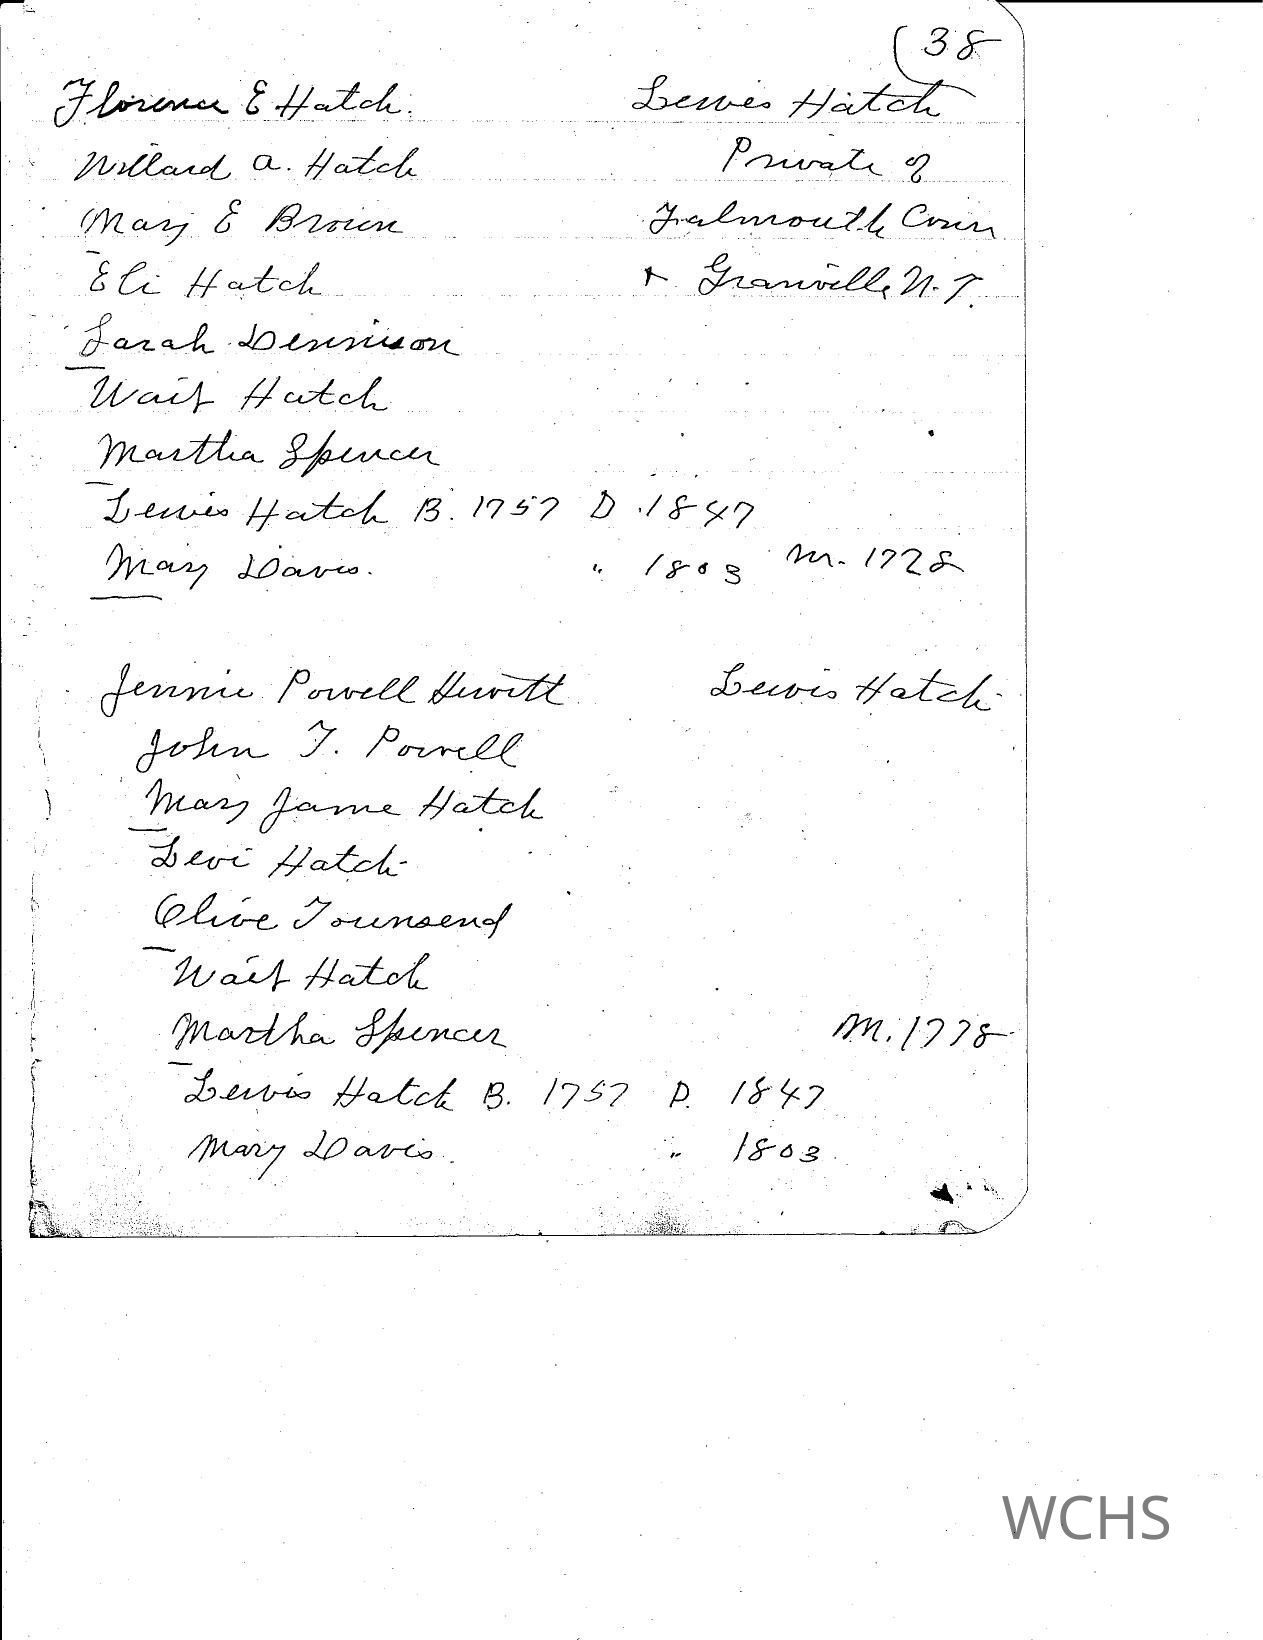 38
Florence E Hatch. Lewis Hatch
Willard A. Hatch Private of
Mary E Brown Falmouth Conn
Eli Hatch + Granville N.Y.
Sarah Dennison
Wait Hatch
Martha Spencer
Lewis Hatch B. 1757 D. 1847
Mary Davis. " 1803 M. 1778
Jennie Powell Hewitt Lewis Hatch
John T. Powell
Mary Jane Hatch
Levi Hatch
Olive Townsend
Wait Hatch
Martha Spencer M. 1778
Lewis Hatch B. 1757 D. 1847
Mary Davis. " 1803
WCHS